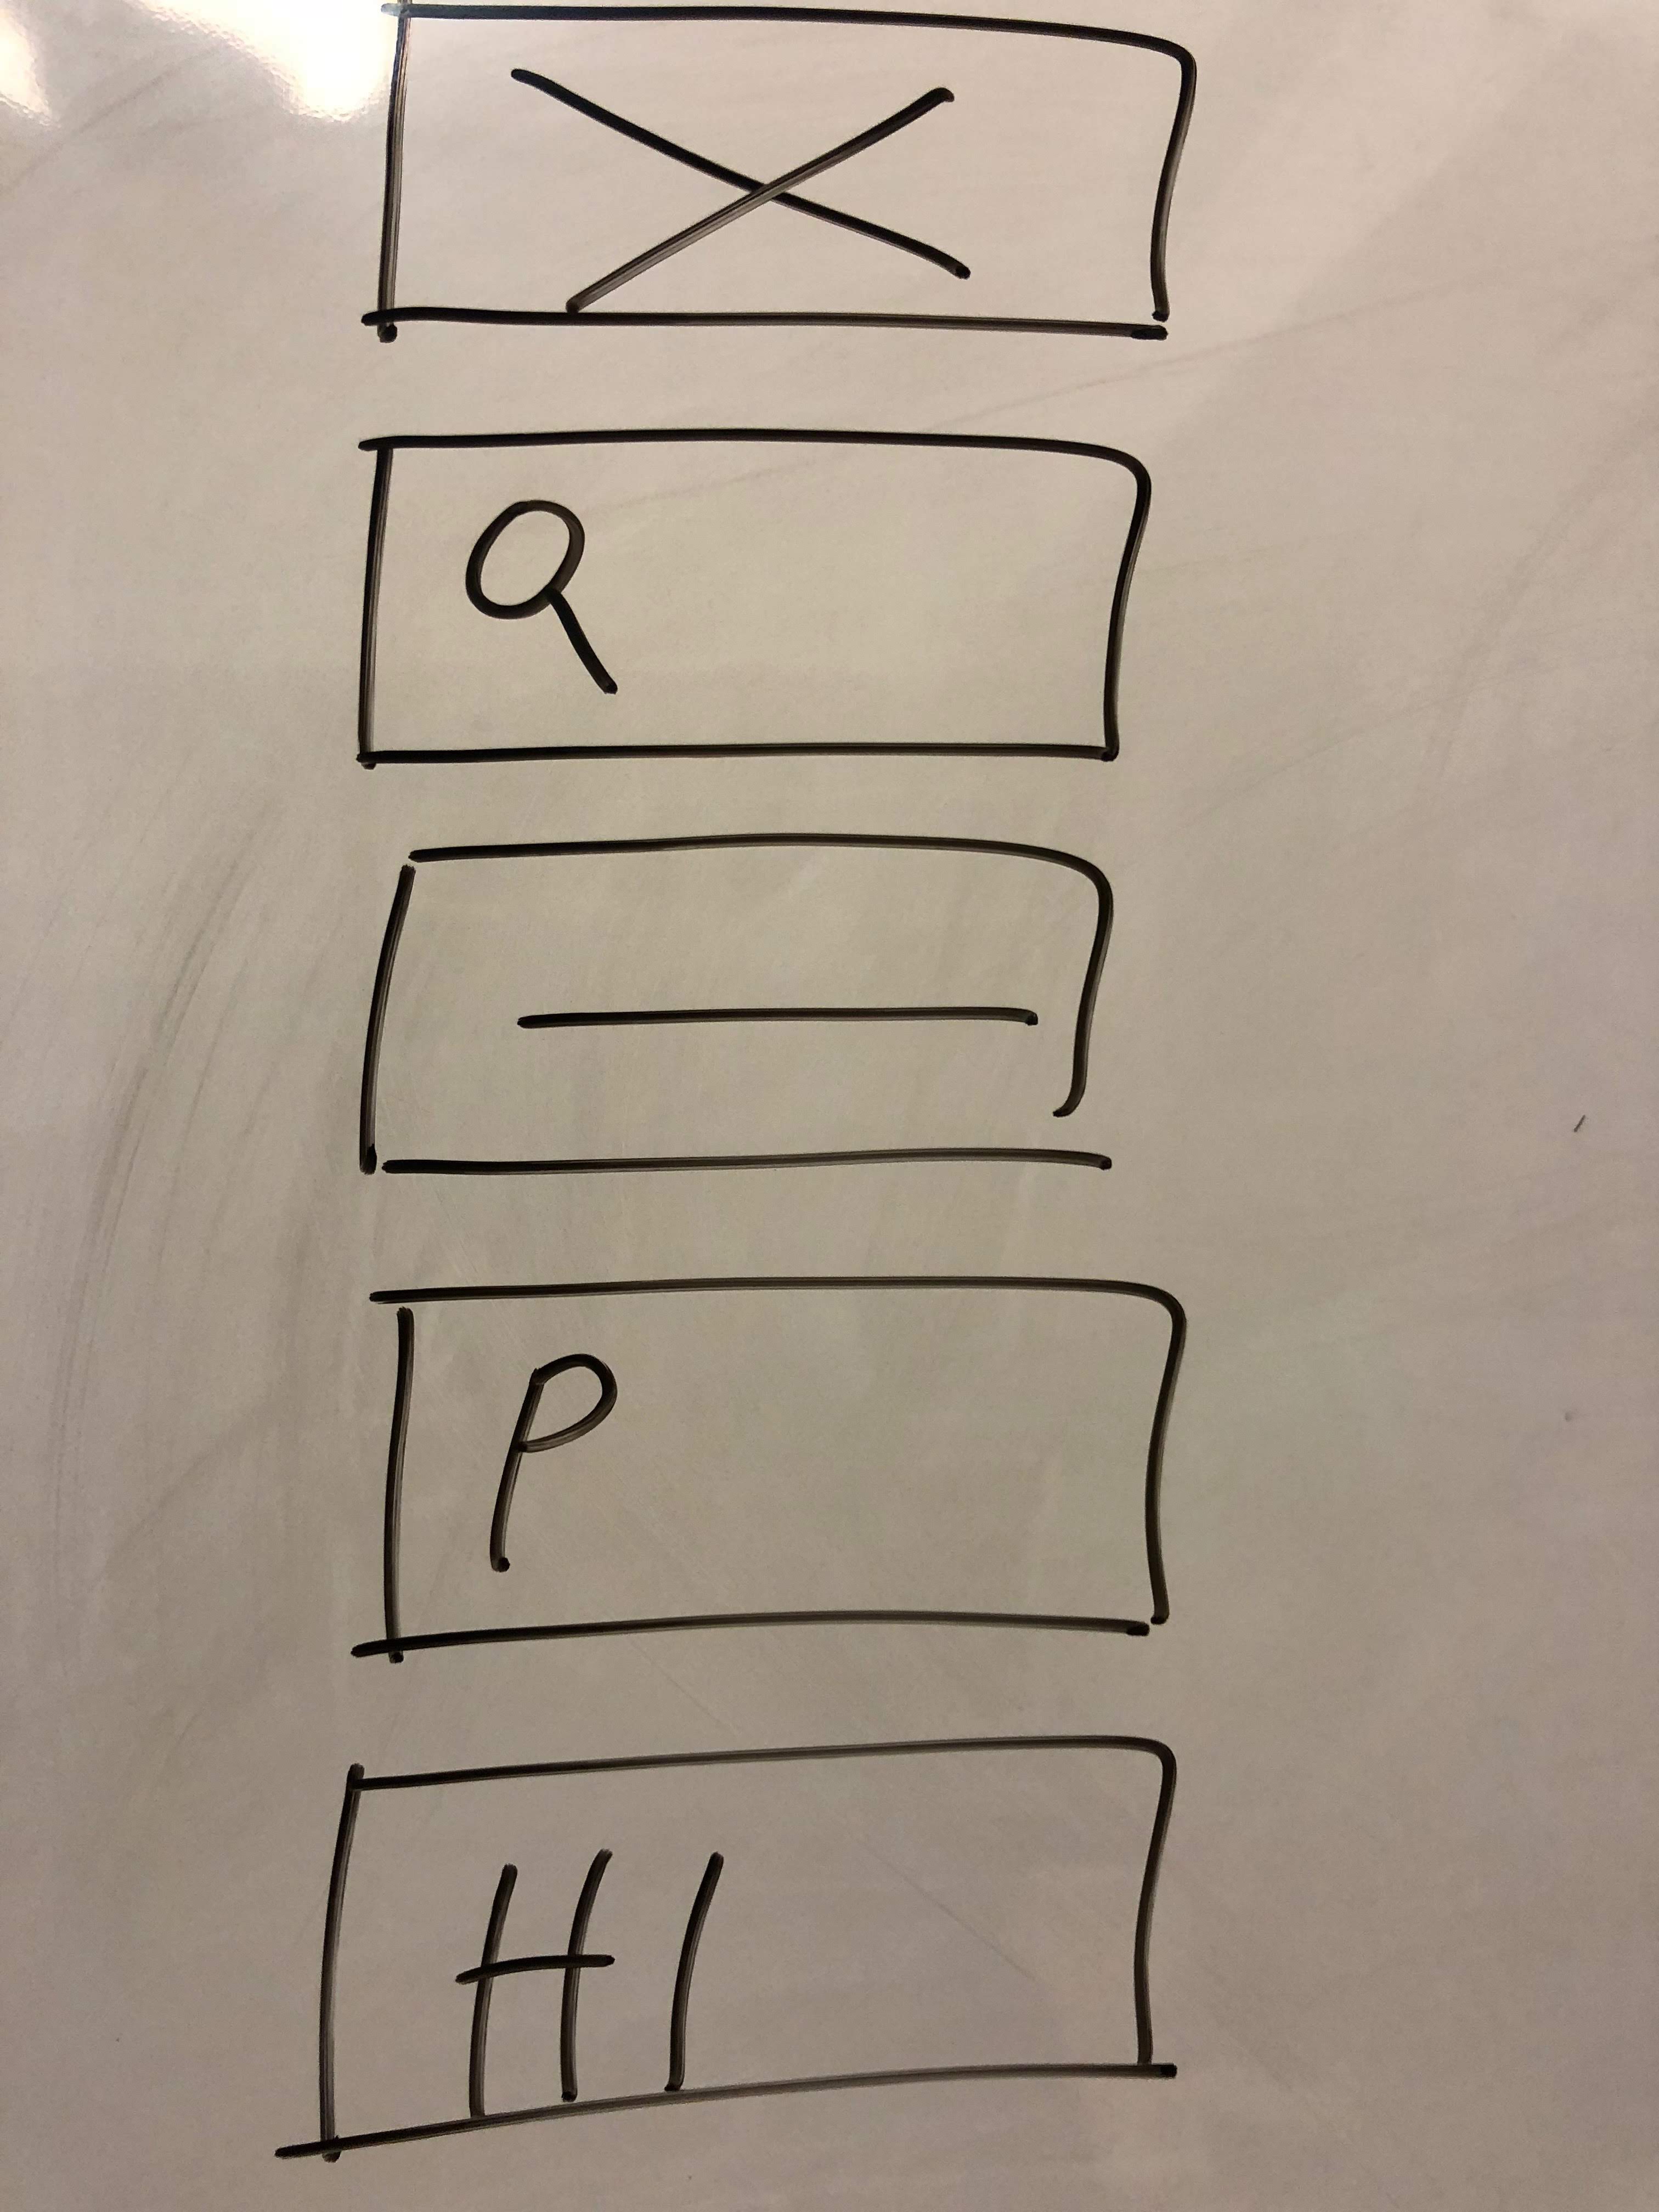 P
H1